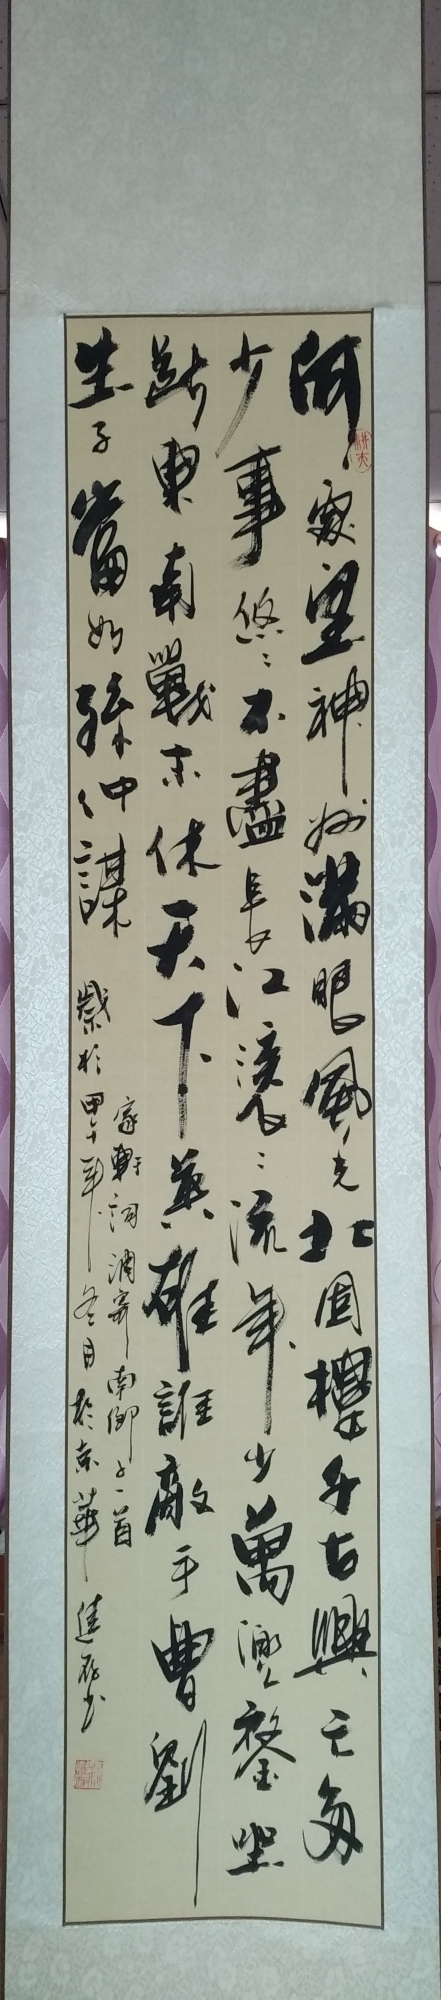 何處望神州滿眼風光北固樓千古興亡多
少事悠〻不盡長江滾〻流年少萬兜鍪坐
斷東南戰未休天下英雄誰敵手曹劉
生子當如孫仲謀
軒詞調寄南鄉子一首
於甲午年冬月於京華 書